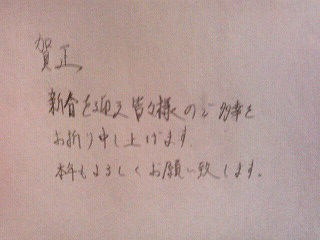 賀正
新春を迎え皆々様のご多幸を
お祈り申し上げます
本年もよろしくお願い致します。